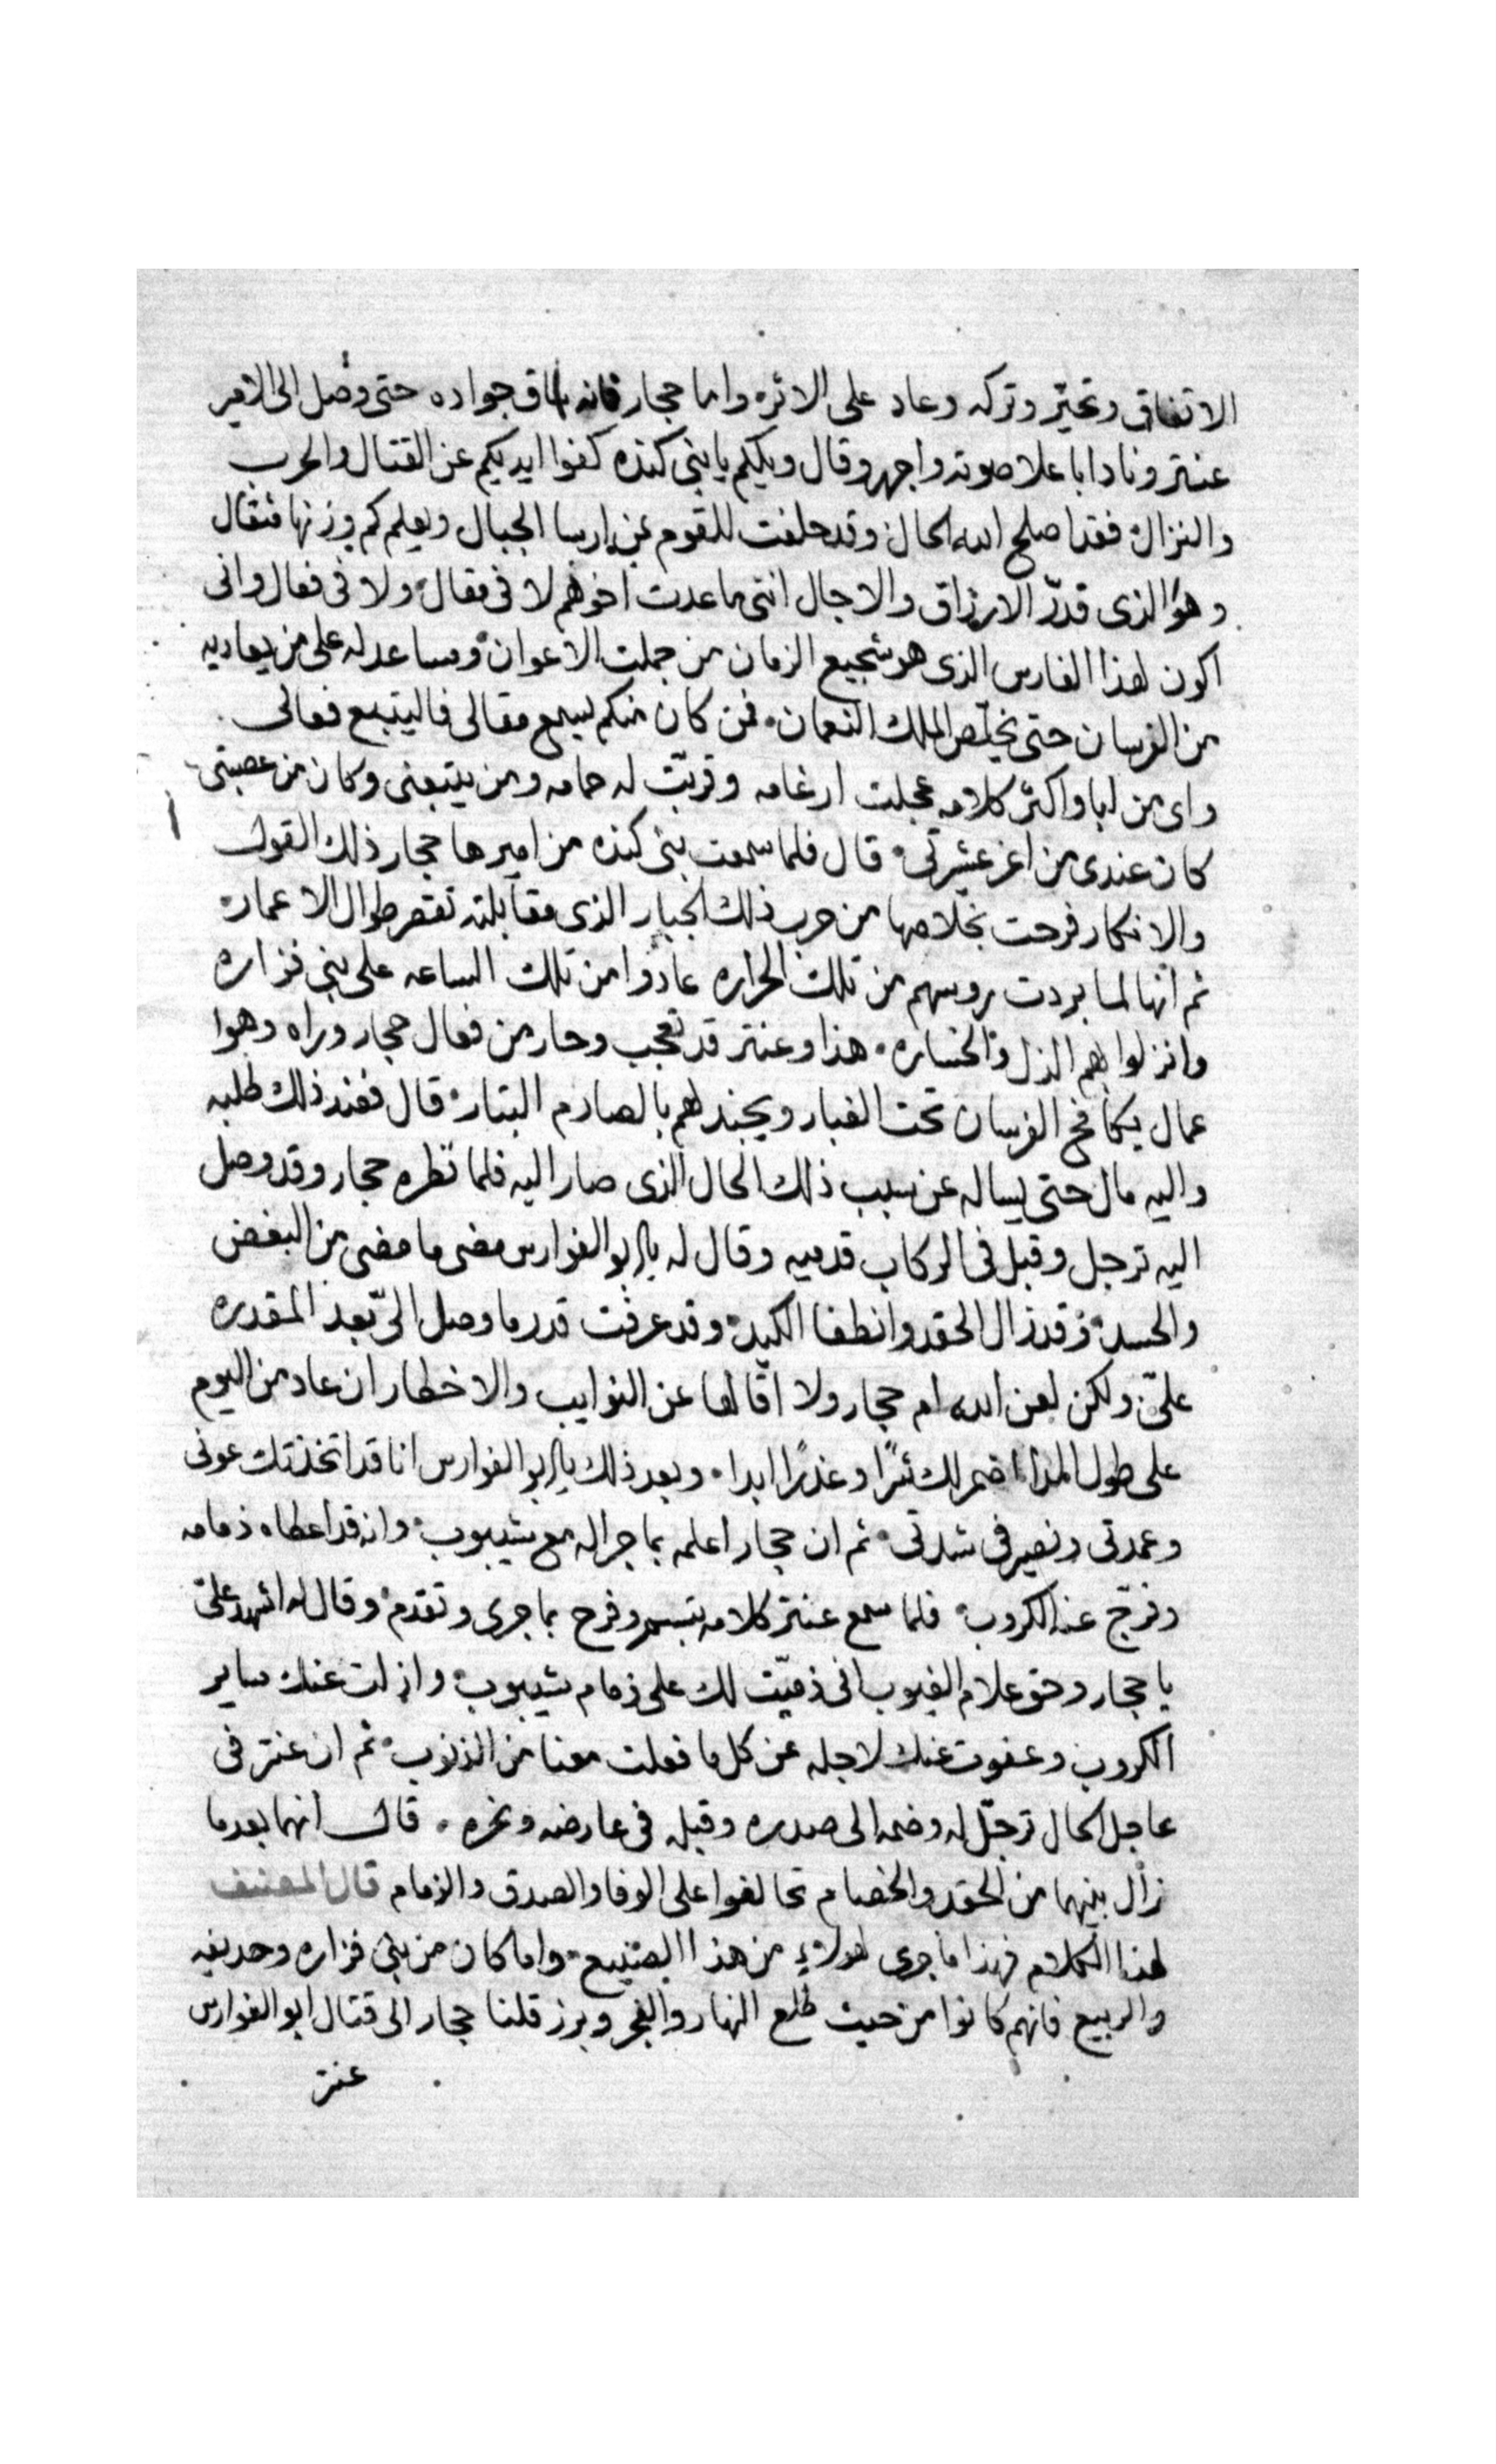 الاتفاق وتحيّر وتركه وعاد على الاثر۰ واما حجار فانه ساق جواده حتى وصل الى الامير
عنتر ونادا باعلا صوته واجهر وقال ويلكم يا بنى كنده كفوا ايديكم عن القتال والحرب
والنزال۰ فقد اصلح الله الحال وقد حلفت للقوم بمن ارسا الجبال ويعلم كم وزنها مثقال
وهوا الذى قدرّ الارزاق والاجال اننى ما عدت اخونهم لا فى مقال۰ ولا فى فعال وانى
اكون لهذا الفارس الذى هو شجيع الزمان من جملت الاعوان۰ ومساعد له على من يعاديه
من الفرسان حتى يخلّص الملك النعمان۰ فمن كان منكم يسمع مقالى فاليتبع فعالى
واى من ابا واكثر كلامه عجلت ارغامه وقربّت له حمامه ومن يتبعنى وكان من عصبتى
كان عندى من اعز عشيرتى۰ قال فلما سمعت بنى كنده من اميرها حجار ذلك القول
والانكار فرحت بخلاصها من حرب ذلك الجبار الذى مقابلته تقصر طوال الاعمار۰
ثم انها لما بردت روسهم من تلك الحراره عادوا من تلك الساعه على بنى فزاره
وانزلوا بهم الذل والخساره۰ هذا وعنتر قد تعجب وحار من فعال حجار وراه وهوا
عمال يكافح الفرسان تحت الغبار ويجندلهم بالصارم البتار۰ قال فعند ذلك طلبه
واليه مال حتى يساله عن سبب ذلك الحال الذى صار اليه فلما نظره حجار وقد وصل
اليه ترجل وقبل فى الركاب قدميه وقال له يا ابو الفوارس مضى ما مضى من البغض
والحسد۰ وقد زال الحقد وانطفا الكبد۰ وقد عرفت قدر ما وصل الىّ بعد المقدره
علىّ ولكن لعن الله ام حجار ولا اقالها عن النوايب والاخطار ان عاد من اليوم
على طول المدا اضمر لك شرًا وغدرًا ابدا۰ وبعد ذلك يا ابو الفوارس انا قد اتخذتك عونى
وعمدتى ونصير فى شدتى۰ ثم ان حجار اعلمه بما جرا له مع شيبوب۰ وانه قد اعطاه ذمامه
وفرّج عنه الكروب۰ فلما سمع عنتر كلامه تبسم وفرح بما جرى وتقدم۰ وقال له اشهد علىّ
يا حجار وحق علام الغيوب انى ذميّت لك على ذمام شيبوب۰ وازلت عنك ساير
الكروب وعفوت عنك لاجله عن كل ما فعلت معنا من الذنوب۰ ثم ان عنتر فى
عاجل الحال ترجّل له وضمه الى صدره وقبله فى عارضه ونحره۰ قال انهما بعد ما
زال بينهما من الحقد والخصام تحالفوا على الوفا والصدق والذمام قال المصنف
لهذا الكلام فهذا ما جرى لهولاءِ من هذا الصنيع۰ واما كان من بنى فزاره وحديفه
والربيع فانهم كانوا من حيث طلع النهار والفجر وبرز قلنا حجار الى قتال ابو الفوارس
عنتر